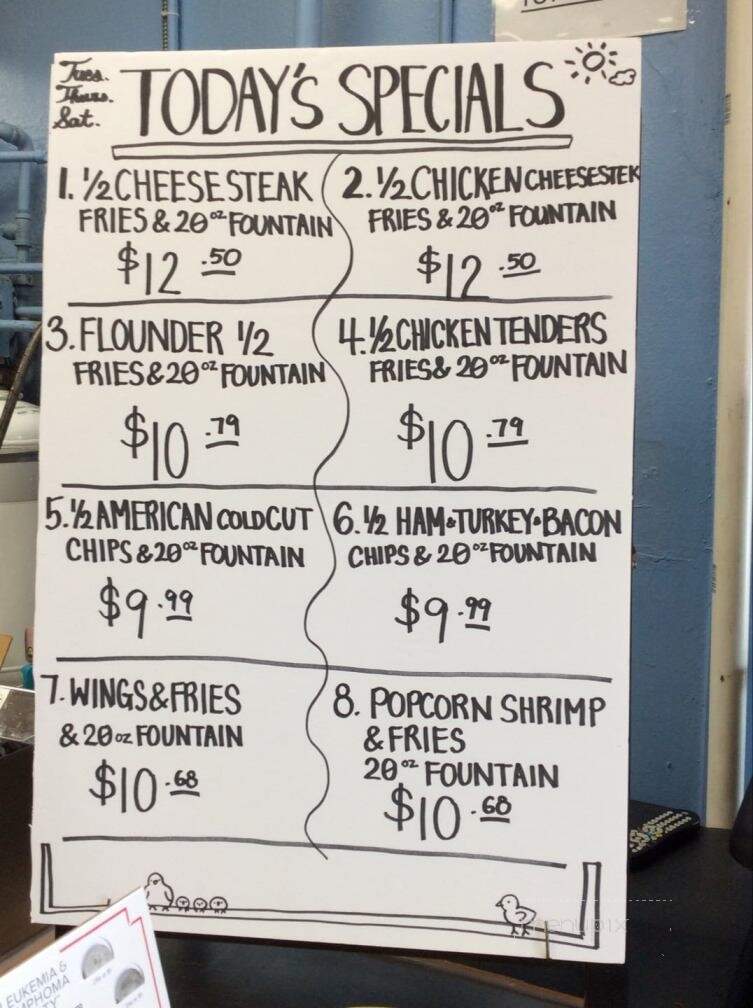 Tues.
Thurs.
Sat.
TODAY'S SPECIALS
1. 1/2 CHEESESTEAK
FRIES & 20oz FOUNTAIN
$12.50
2. 1/2 CHICKEN CHEESESTEK
FRIES & 20oz FOUNTAIN
$12.50
3. FLOUNDER 1/2
FRIES & 20oz FOUNTAIN
$10.79
4. 1/2 CHICKEN TENDERS
FRIES & 20oz FOUNTAIN
$10.79
5. 1/2 AMERICAN COLD CUT
CHIPS & 20oz FOUNTAIN
$9.99
6. 1/2 HAM•TURKEY•BACON
CHIPS & 20oz FOUNTAIN
$9.99
7. WINGS & FRIES
& 20oz FOUNTAIN
$10.68
8. POPCORN SHRIMP
& FRIES
20oz FOUNTAIN
$10.68
menupix
LEUKEMIA &